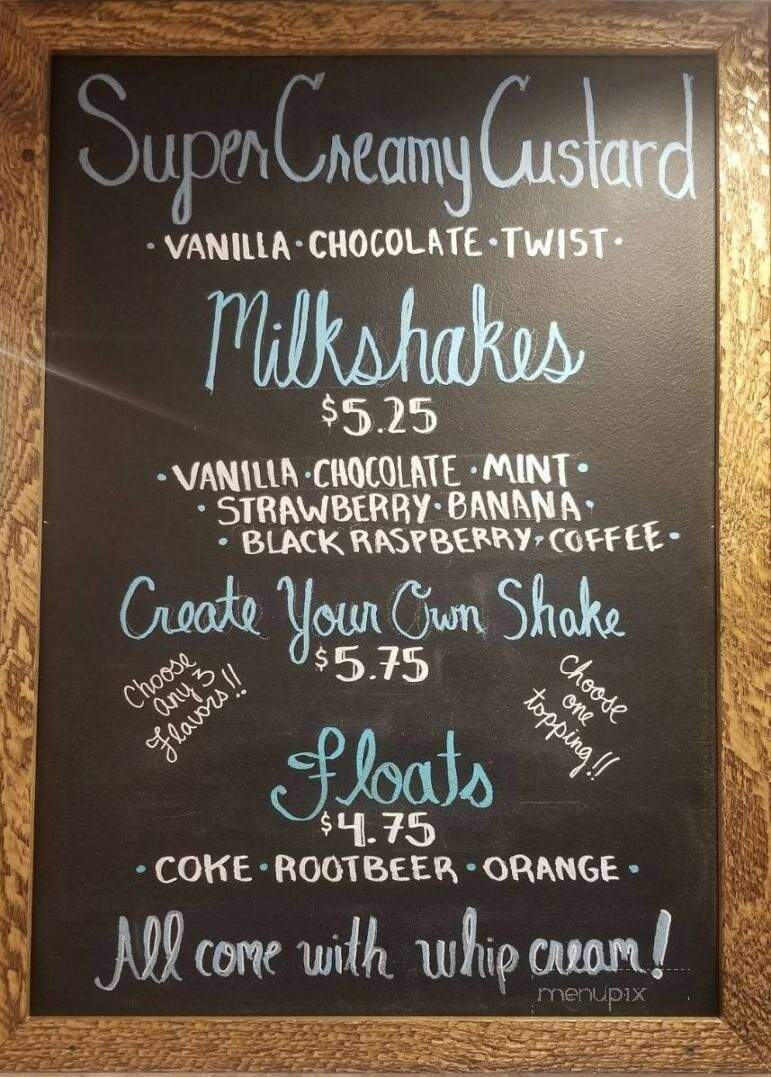 Super Creamy Custard
· VANILLA · CHOCOLATE · TWIST ·
Milkshakes
$5.25
· VANILLA · CHOCOLATE · MINT ·
· STRAWBERRY · BANANA ·
· BLACK RASPBERRY · COFFEE ·
Create Your Own Shake
$5.75
Choose
any 3
flavors!!
Choose
one
topping!!
Floats
$4.75
· COKE · ROOTBEER · ORANGE ·
All come with whip cream!
menupix